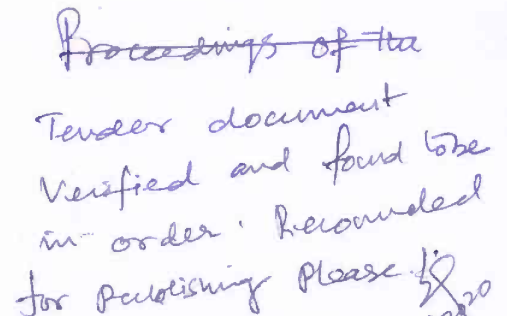 Proceedings of the
Tender document
Verified and found to be
in order. Recomended
for publishing please.